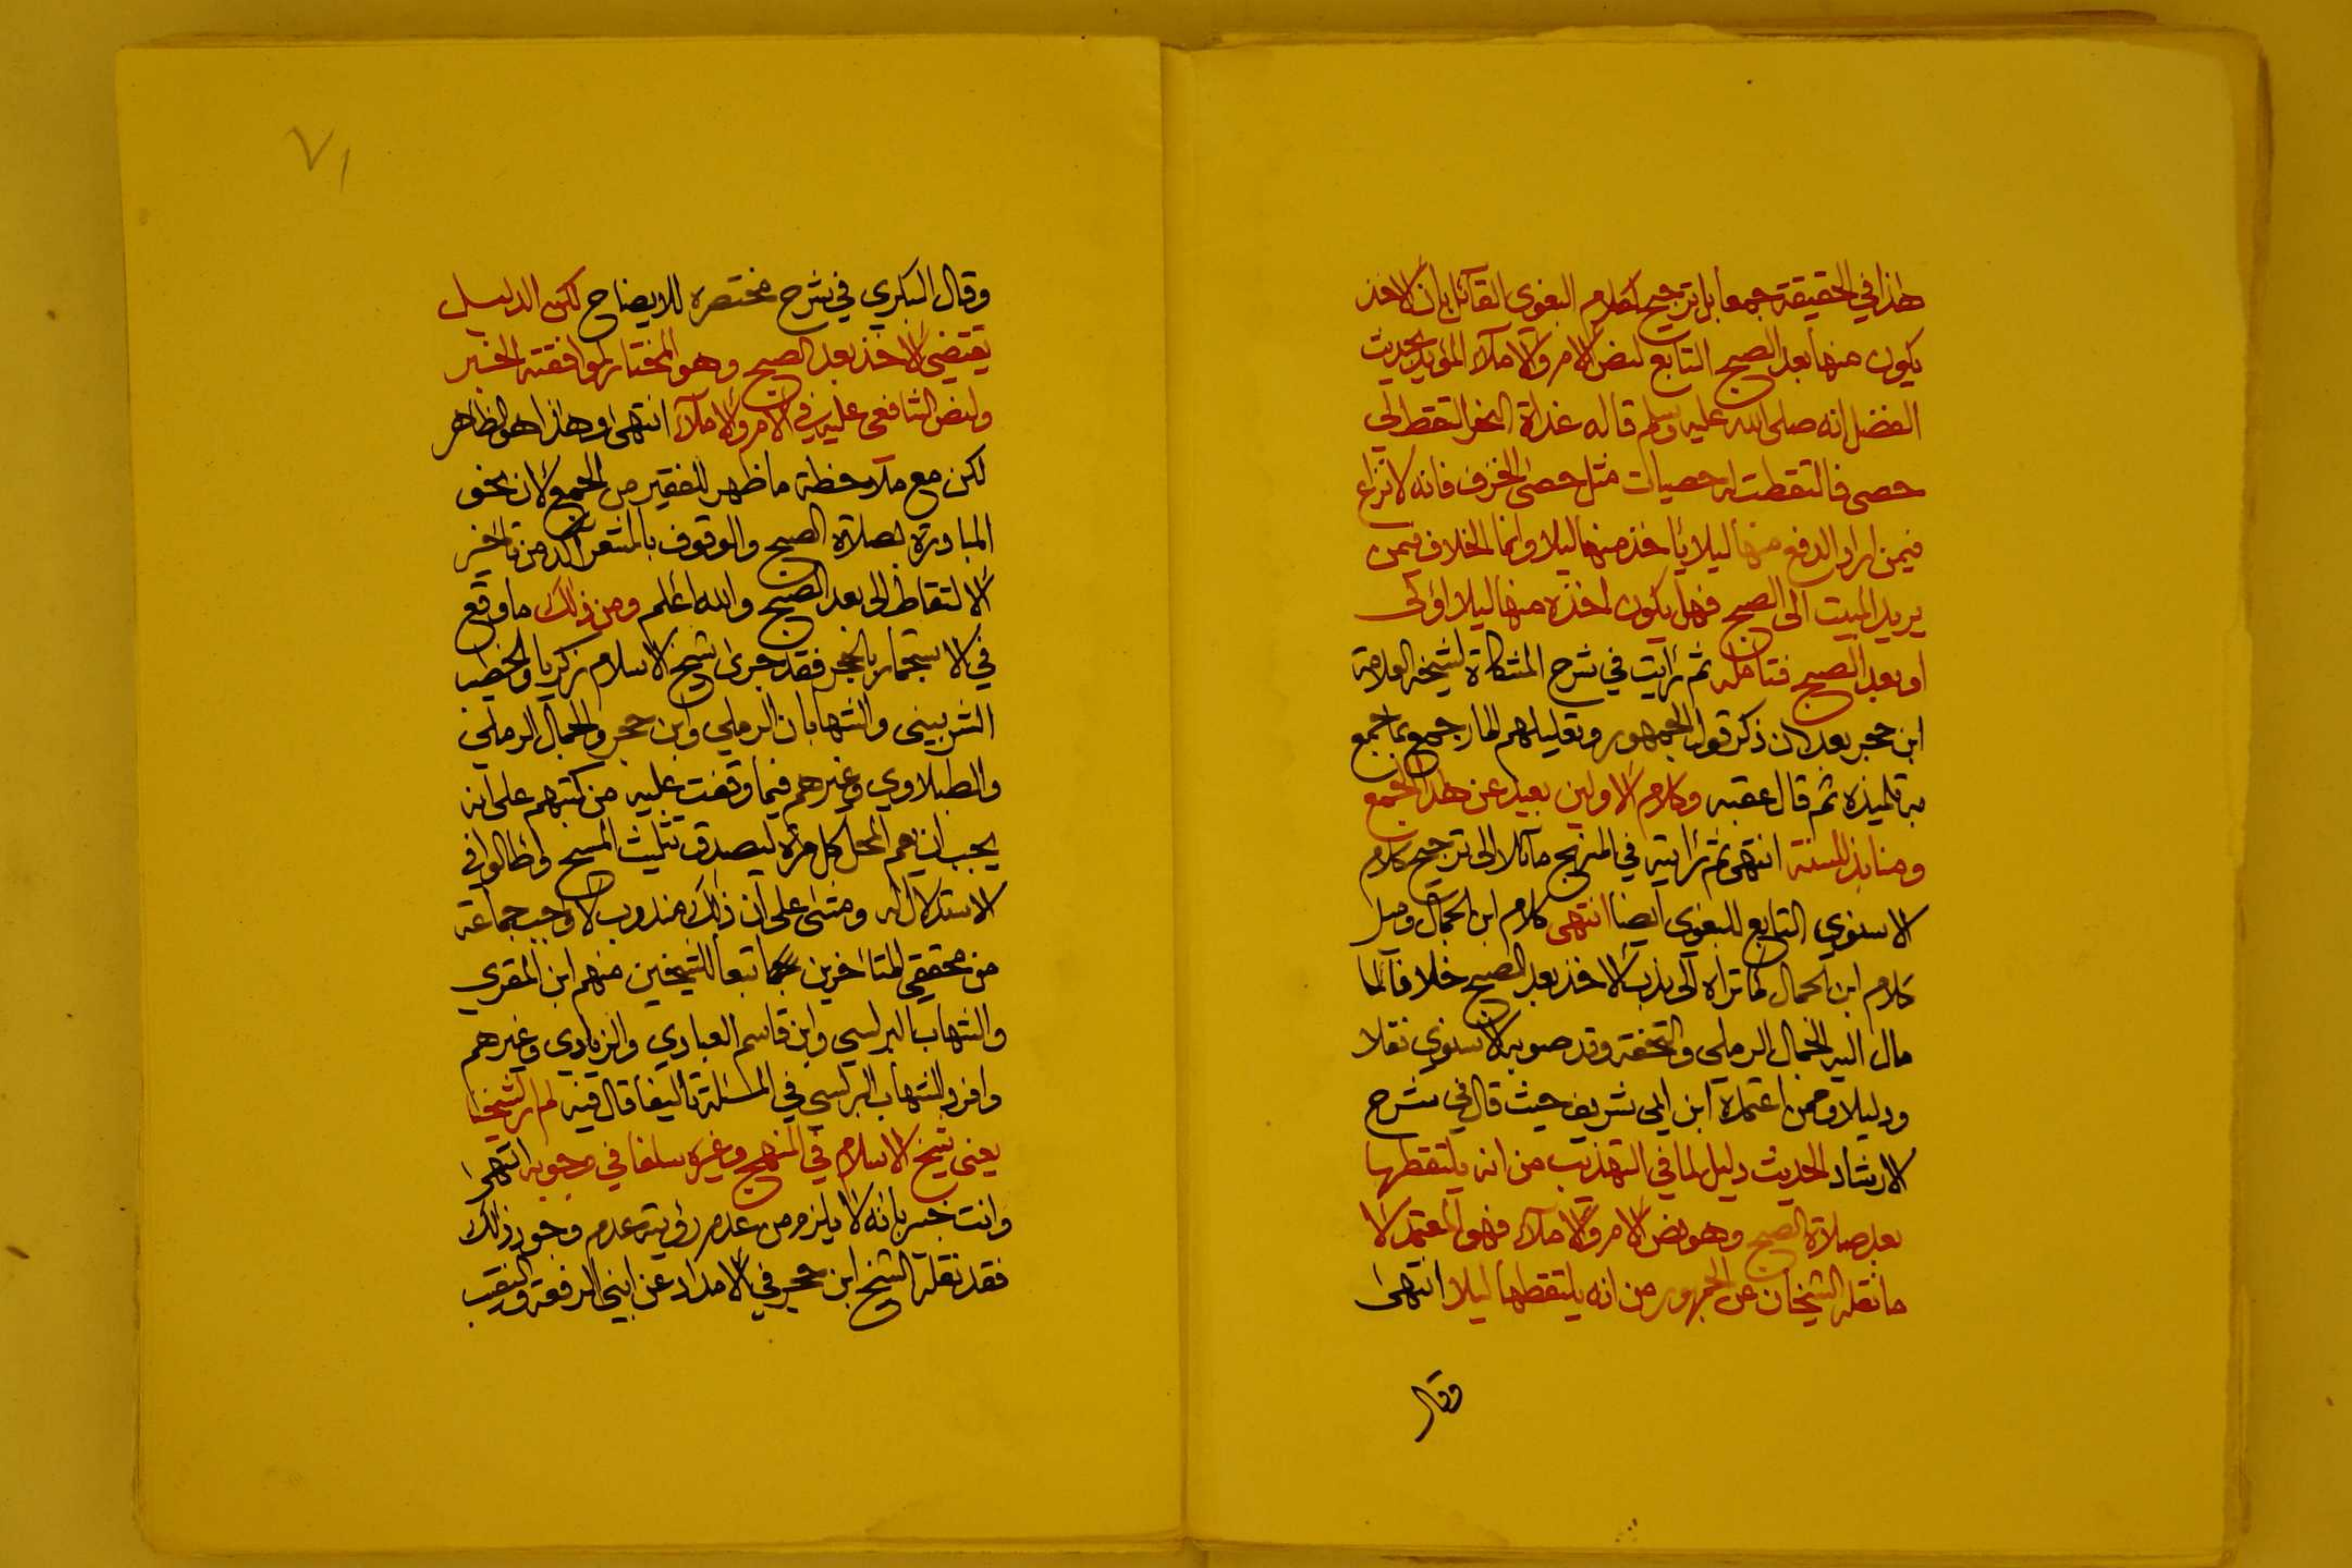 هذا في الحقيقة جمعا بل ترجيح لكلام البغوي القائل بان الاخذ
يكون منها بعد الصبح التابع لنص الام والاملاء المؤيد بحديث
الفضل انه صلى الله عليه وسلم قال له غداة النحر التقط لي
حصى فالتقطت له حصيات مثل حصى الخزف فانه لا نزاع
فيمن اراد الدفع منها ليلا يأخذ منها ليلا وانما الخلاف فيمن
يريد المبيت الى الصبح فهل يكون اخذه منها ليلا اولى
او بعد الصبح فتامله ثم رأيت في شرح المشكاة لشيخه العلامة
ابن حجر بعد ان ذكر قول الجمهور وتعليلهم المار جمع بما جمع
به تلميذه ثم قال عقبه وكلام الاولين بعيد عن هذا الجمع
ومنابذ للسنة انتهى ثم رأيته في المنهج مائلا الى ترجيح كلام
الاسنوي التابع للبغوي ايضا انتهى كلام ابن الجمال وميل
كلام ابن الجمال كما تراه الى ندب الاخذ بعد الصبح خلافا لما
مال اليه الجمال الرملي والتحفة وقد صوبه الاسنوي نقلا
ودليلا وممن اعتمده ابن ابي شريف حيث قال في شرح
الارشاد الحديث دليل لما في التهذيب من انه يلتقطها
بعد صلاة الصبح وهو نص الام والاملاء فهو المعتمد لا
ما نقله الشيخان عن الجمهور من انه يلتقطها ليلا انتهى
وقال
٧١
وقال البكري في شرح مختصره للايضاح لكن الدليل
يقتضي الاخذ بعد الصبح وهو المختار لموافقته الخبر
ولنص الشافعي عليه في الام والاملاء انتهى وهذا هو الظاهر
لكن مع ملاحظة ما ظهر للفقير من الجمع لان نحو
المبادرة بصلاة الصبح والوقوف بالمشعر آكد من تأخير
الالتقاط الى بعد الصبح والله اعلم ومن ذلك ما وقع
في الاستجمار بالحجر فقد جرى شيخ الاسلام زكريا والخطيب
الشربيني والشهابان الرملي وابن حجر والجمال الرملي
والطبلاوي وغيرهم فيما وقفت عليه من كتبهم على انه
يجب ان يعم المحل كل مرة ليصدق تثليث المسح واطالوا في
الاستدلال له ومشى على ان ذلك مندوب لا واجب جماعة
من محققي المتاخرين تبعا للشيخين منهم ابن المقري
والشهاب البرلسي وابن قاسم العبادي والزيادي وغيرهم
وافرد الشهاب البرلسي في المسئلة تأليفا قال فيه لم ار لشيخنا
يعني شيخ الاسلام في المنهج وغيره سلفا في وجوبه انتهى
وانت خبير بانه لا يلزم من عدم رؤيته عدم وجود ذلك
فقد نقله الشيخ ابن حجر في الامداد عن ابني الرفعة والنقيب